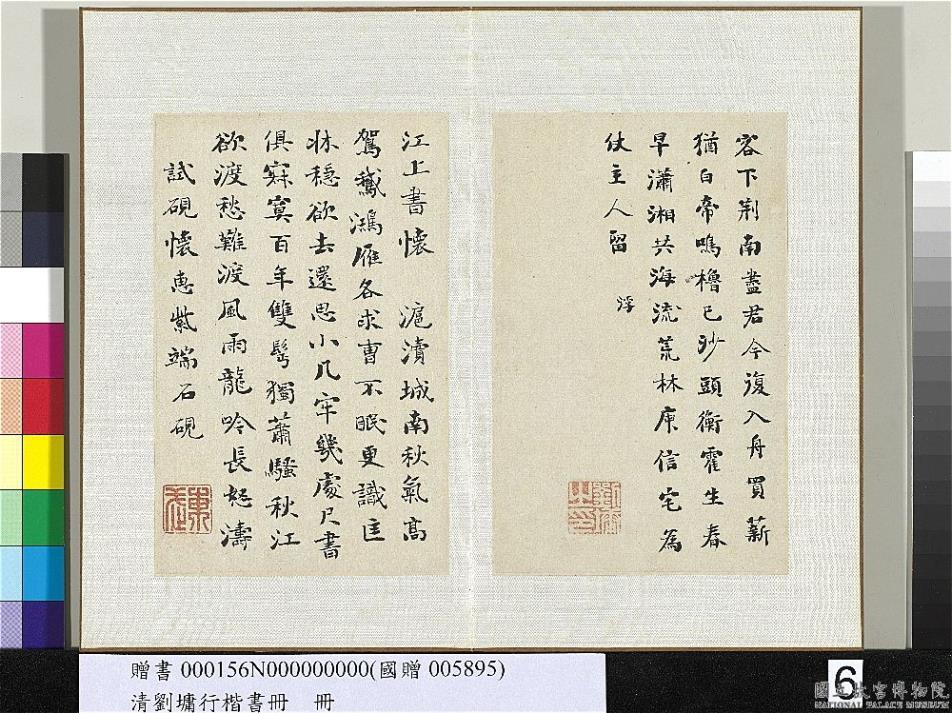 客下荆南盡君今復入舟買薪
猶白帝鳴櫓已沙頭衡霍生春
早瀟湘共海流荒林庾信宅為
仗主人留 浮
劉墉之印
江上書懷 滬瀆城南秋氣高
駕鵞鴻雁各求曹不眠更識匡
牀穩欲去還思小几牢幾處尺書
俱寂寞百年雙髩獨蕭騷秋江
欲渡愁難渡風雨龍吟長怒濤
試硯懷惠紫端石硯
東武
贈書 000156N000000000(國贈 005895)
清劉墉行楷書冊 冊
6
國立故宮博物院
NATIONAL PALACE MUSEUM